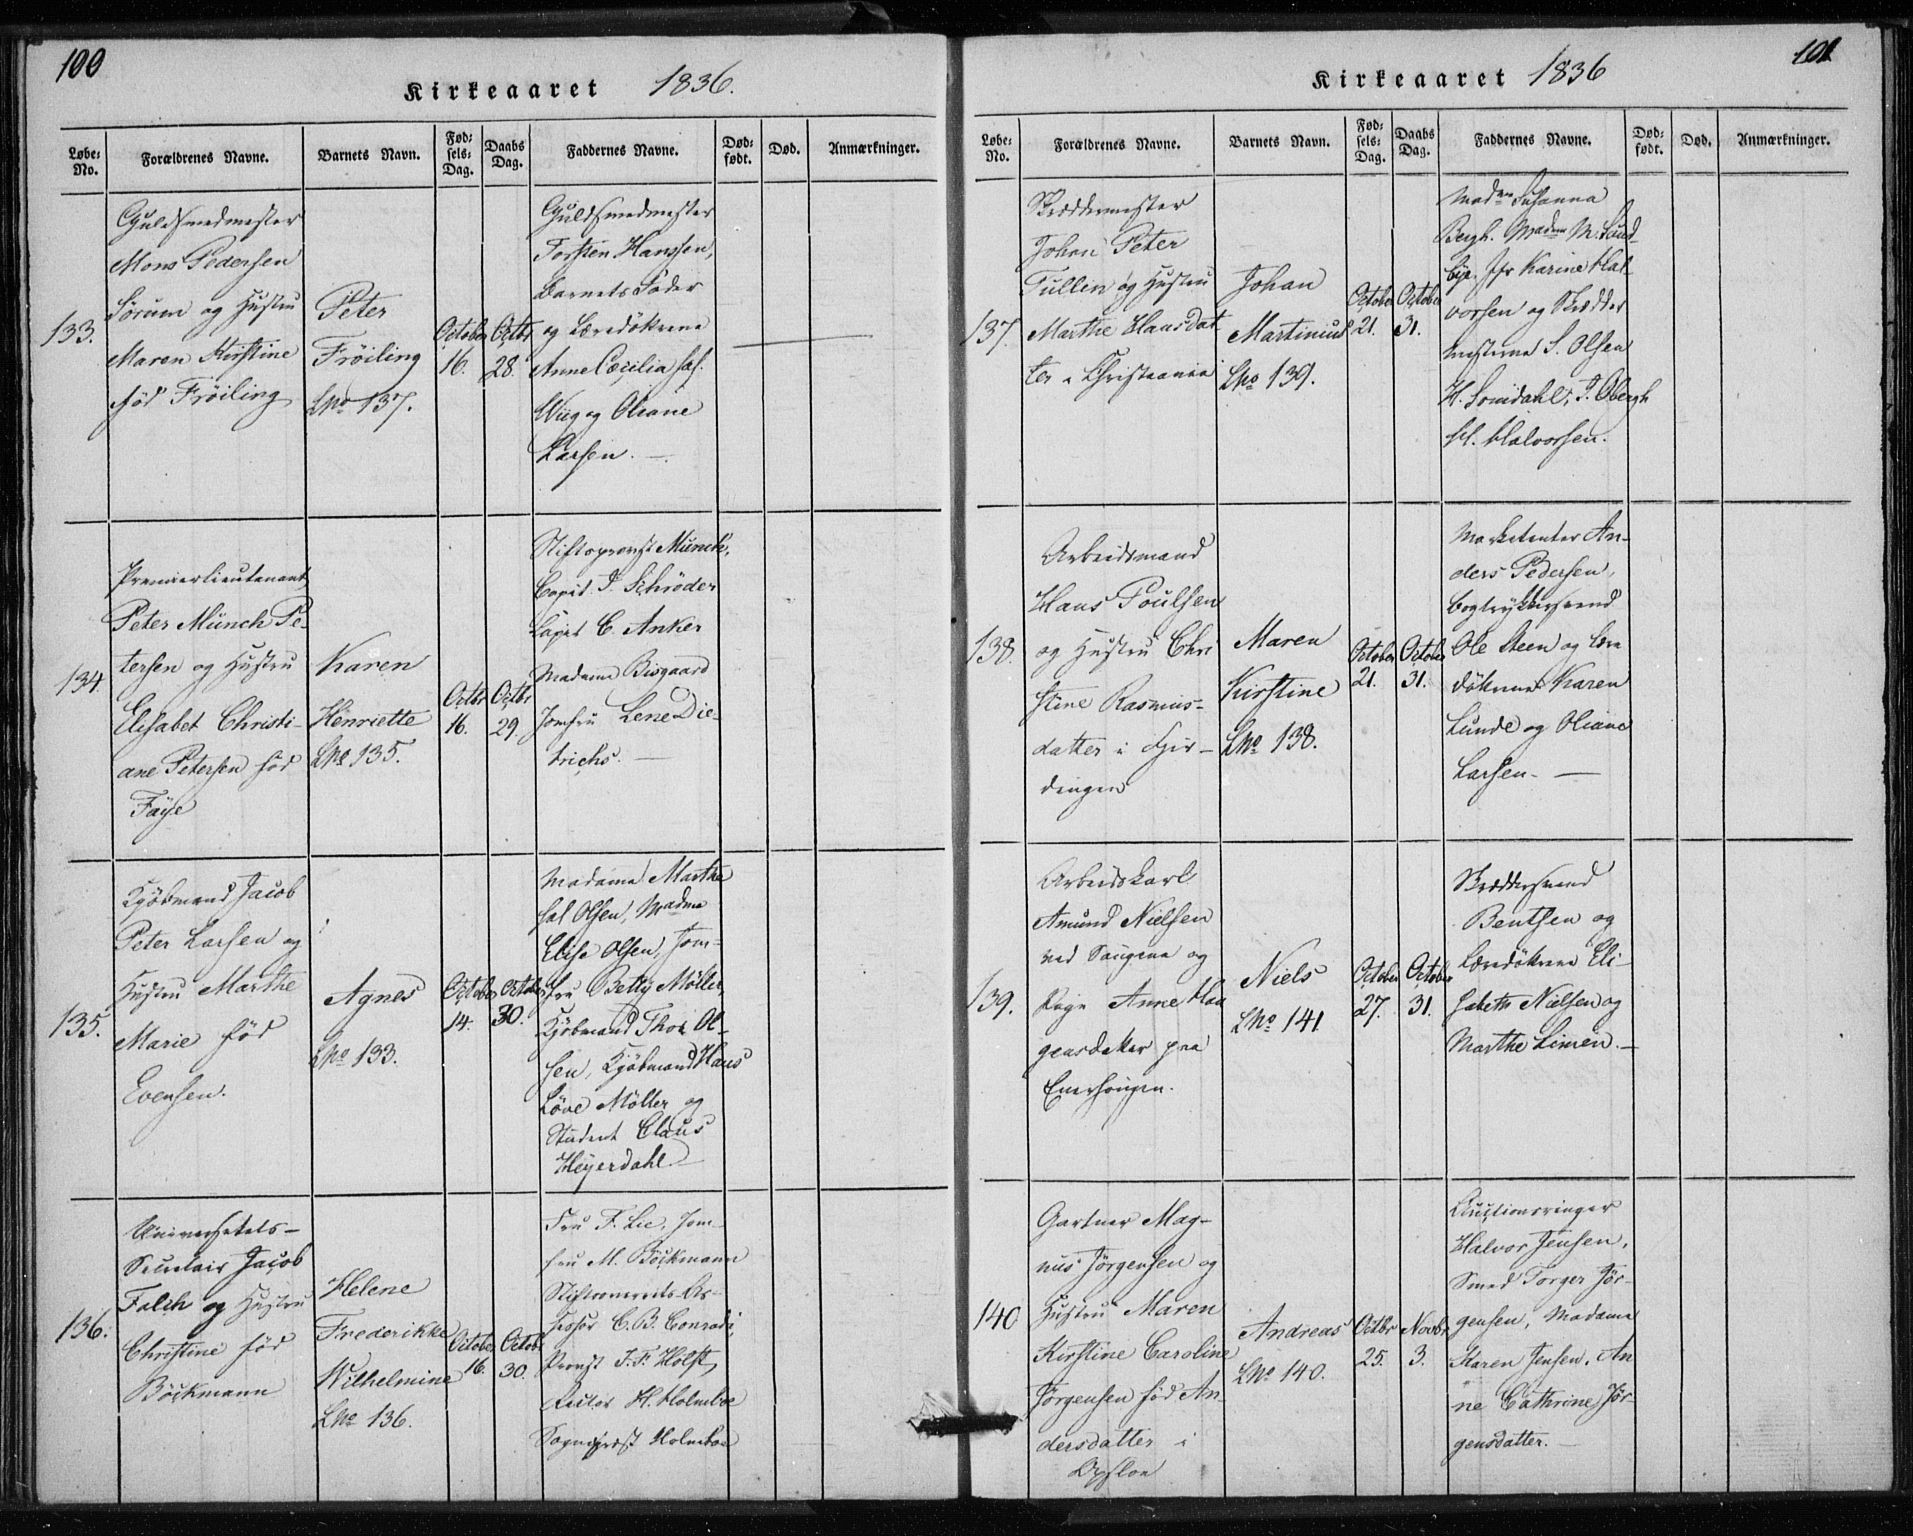 100
Kirkeaaret 1836.
Løbe-No.
Forældrenes Navne.
Barnets Navn.
Fød-sels-Dag.
Daabs Dag.
Faddernes Navne.
Død-født.
Død.
Anmærkninger.
133.
Guldsmedmester
Mons Pedersen
Sörum og Hustru
Maren Kirstine
föd Fröiling
Peter
Fröiling
LNo 137.
October
16.
Octbr
28.
Guldsmedmester
Torsten Hanssen,
Barnets Fader
og Læredökrene
Anne Cæcilia
Wiig og Oliane
Larsen. —
134.
Premierlieutenant
Peter Münch Pe-
tersen og Hustru
Elisabet Christi-
ane Petersen föd
Faÿe
Karen
Henriette
LNo 135.
Octbr
16.
Octbr
29.
Stiftsprovst Münch,
Capit. P. Schröder
Capit C. Anker
Madame Bisgaard
Jomfru Lene Die-
trichs. —
135.
Kjöbmand Jacob
Peter Larsen og
Hustru Marthe
Marie föd
Evensen.
Agnes
LNo 133.
October
14.
October
30.
Madame Marthe
sal Olsen, Madme
Elise Olsen, Jom-
fru Betty Möller,
Kjöbmand Thor Ol-
sen, Kjöbmand Hans
Löve Möller og
Student Claus
Heÿerdahl. —
136.
Universitets-
Secretair Jacob
Falch og Hustru
Christine föd
Böckmann
Helene
Frederikke
Wilhelmine
LNo 136.
October
16.
Octob.
30.
Fru F. Lie, Jom-
fru M. Böckmann
Stiftsoverrets As-
sessor C. B. Conradi,
Provst F. F. Holst,
Rector H. Holmboe
Sogneprest Holmboe
101
Kirkeaaret 1836
Løbe-No.
Forældrenes Navne.
Barnets Navn.
Fød-sels-Dag.
Daabs Dag.
Faddernes Navne.
Død-født.
Død.
Anmærkninger.
137.
Skreddermester
Johan Peter
Tullin og Hustru
Marthe Hansdat
ter i Christiania
Johan
Martinius
LNo 139.
October
21.
October
31.
Madme Susanna
Bergh. Madme M. Lund-
bÿe. Jfr Karine Hal
vorsen og Skrædder
mesterne S. Olsen
H. Somdahl, P. Obergh
H. Halvorsen.
138.
Arbeidsmand
Hans Poulsen
og Hustru Chri
stine Rasmus-
datter i Gjer-
dingen
Maren
Kirstine
LNo 138.
October
21.
October
31.
Marketenter An-
ders Pedersen,
Bogtrykkersvend
Ole Steen og Lære
dökrene Karen
Lunde og Oliane
Larsen. —
139.
Arbeidskarl
Amund Nielsen
ved Saugene og
Pige Anne Haa
gensdatter paa
Enerhougen.
Niels
LNo 141.
October
27.
October
31.
Skreddersvend
Bentsen og
Læredökrene Eli-
sabeth Nielsen og
Marthe Limen. —
140
Gartner Mag-
nus Jörgensen og
Hustru Maren
Kirstine Caroline
Jörgensen föd An-
dersdatter i
Opsloe
Andreas
LNo 140.
Octbr
25.
Novbr
3.
Auctionsringer
Halvor Jensen,
Smed Torger Jör-
gensen, Madame
Karen Jensen, An
ne Cathrine Jör-
gensdatter. —